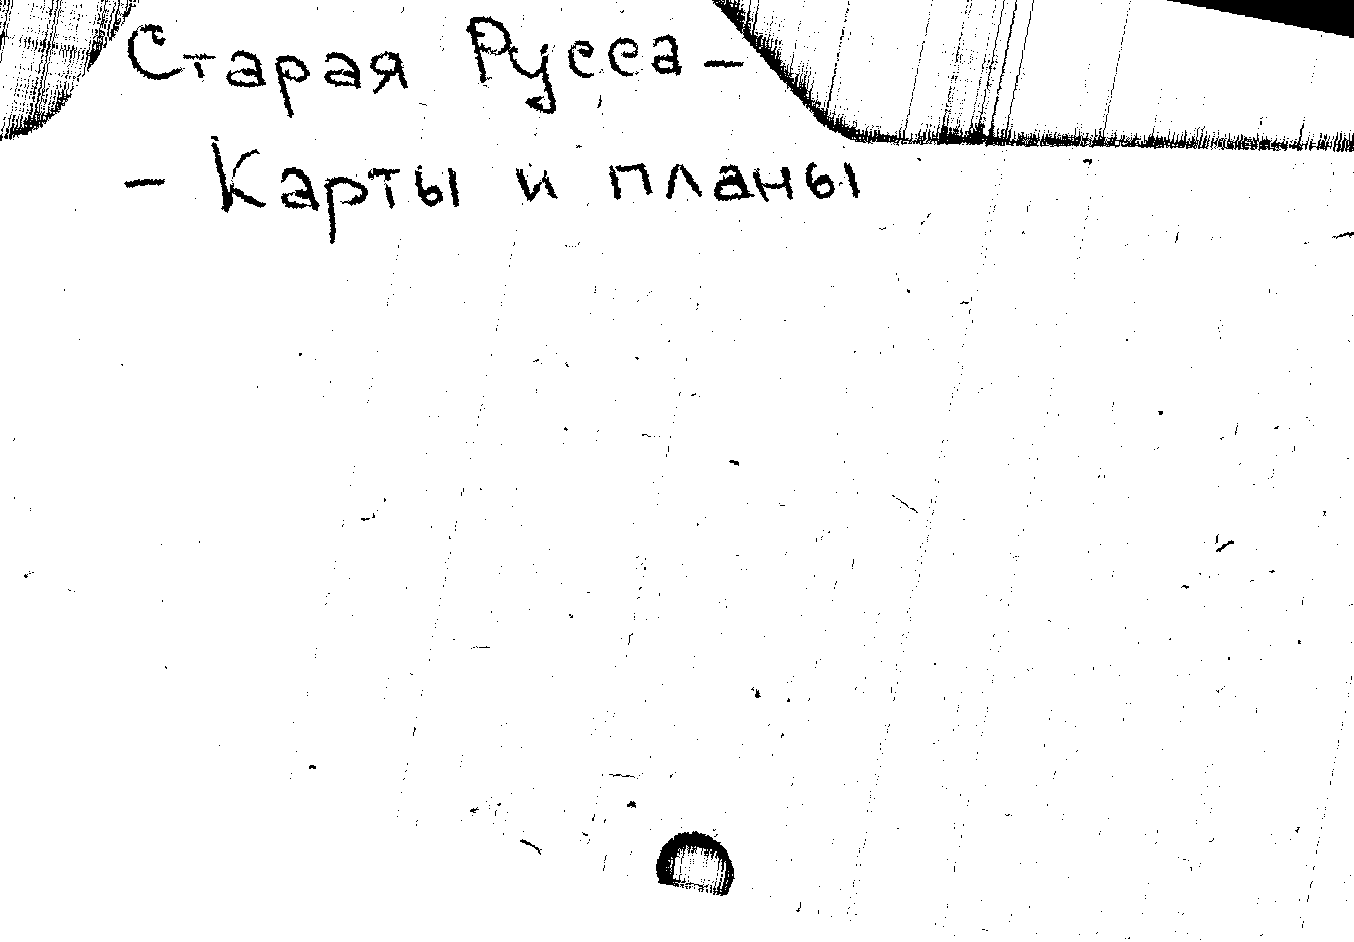 Старая Русса -
- Карты и планы